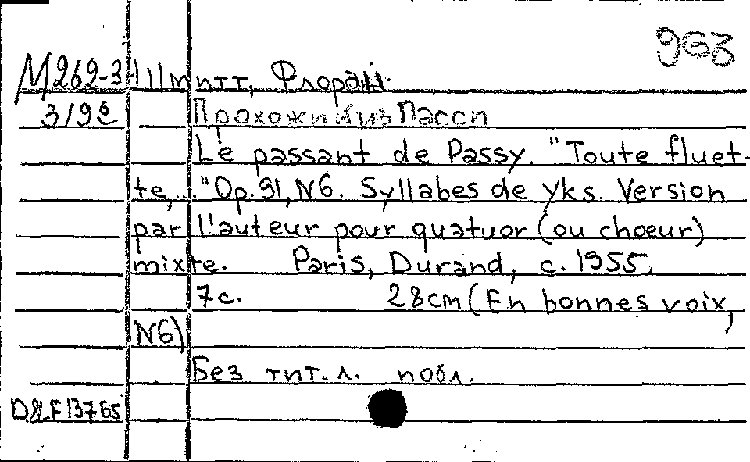 963
М262-3 Шмитт, Флоран.
319е Прохожий из Пасси
Le passant de Passy. "Toute fluet-
te,.." Op.91, N6. Syllabes de yks. Version
par l'auteur pour quatuor (ou choeur)
mixte. Paris, Durand, c. 1955.
7c. 28cm (En bonnes voix,
N6)
Без тит. л. и обл.
D&F13765